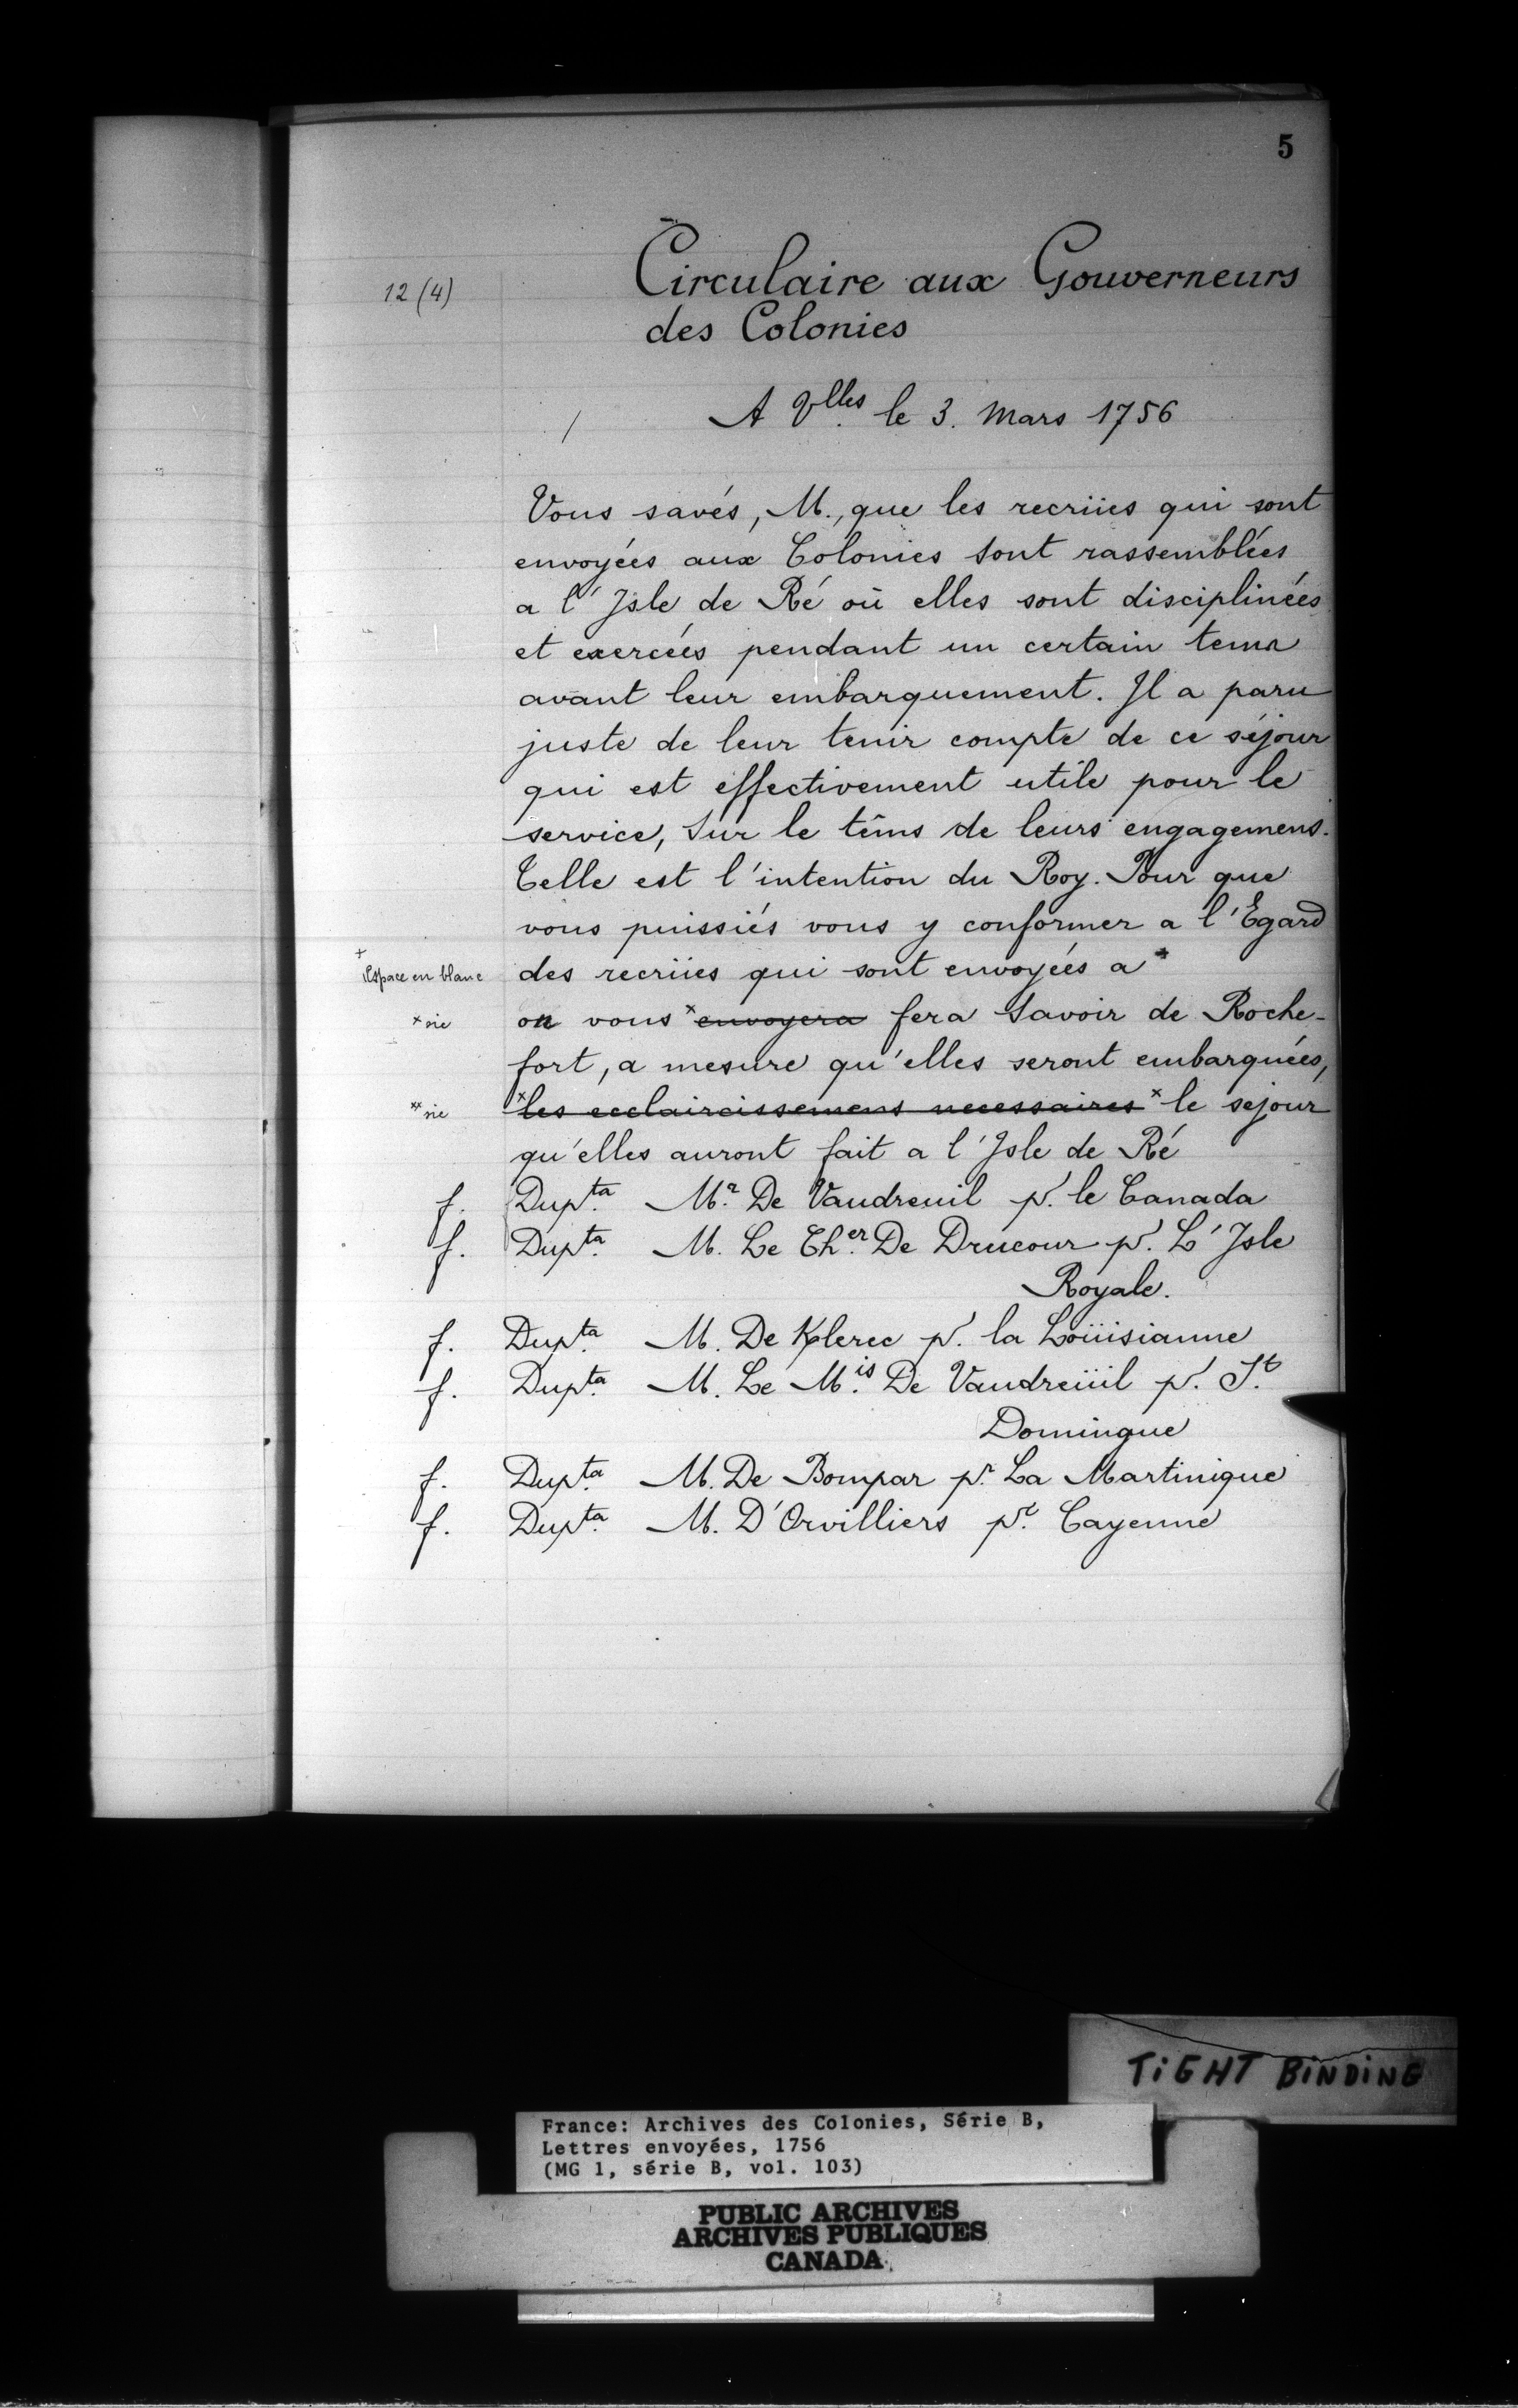 5
12 (4)
Circulaire aux Gouverneurs
des Colonies
A Vlles. le 3. Mars 1756
Vous savés, M., que les recrües qui sont
envoyées aux Colonies sont rassemblées
a l'Isle de Ré où elles sont disciplinées
et exercées pendant un certain tems
avant leur embarquement. Il a paru
juste de leur tenir compte de ce séjour
qui est effectivement utile pour le
service, sur le têms de leurs engagemens.
Telle est l'intention du Roy. Pour que
vous puissiés vous y conformer a l'Egard
+ Espace en blanc des recrües qui sont envoyées a +
x sic on vous x envoyera fera savoir de Roche-
fort, a mesure qu'elles seront embarquées,
xx sic x les ecclaircissemens necessaires x le sejour
qu'elles auront fait a l'Isle de Ré
f. Dupta. Mr. De Vaudreuil p. le Canada
f. Dupta. M. Le Cher. De Drucour p. L'Isle
Royale.
f. Dupta. M. De Klerec p. la Loüisianne
f. Dupta. M. Le Mis. De Vaudreüil p. St.
Domingue
f. Dupta. M. De Bompar pr. La Martinique
f. Dupta. M. D'Orvilliers pr. Cayenne
TIGHT BINDING
France: Archives des Colonies, Série B,
Lettres envoyées, 1756
(MG 1, série B, vol. 103)
PUBLIC ARCHIVES
ARCHIVES PUBLIQUES
CANADA